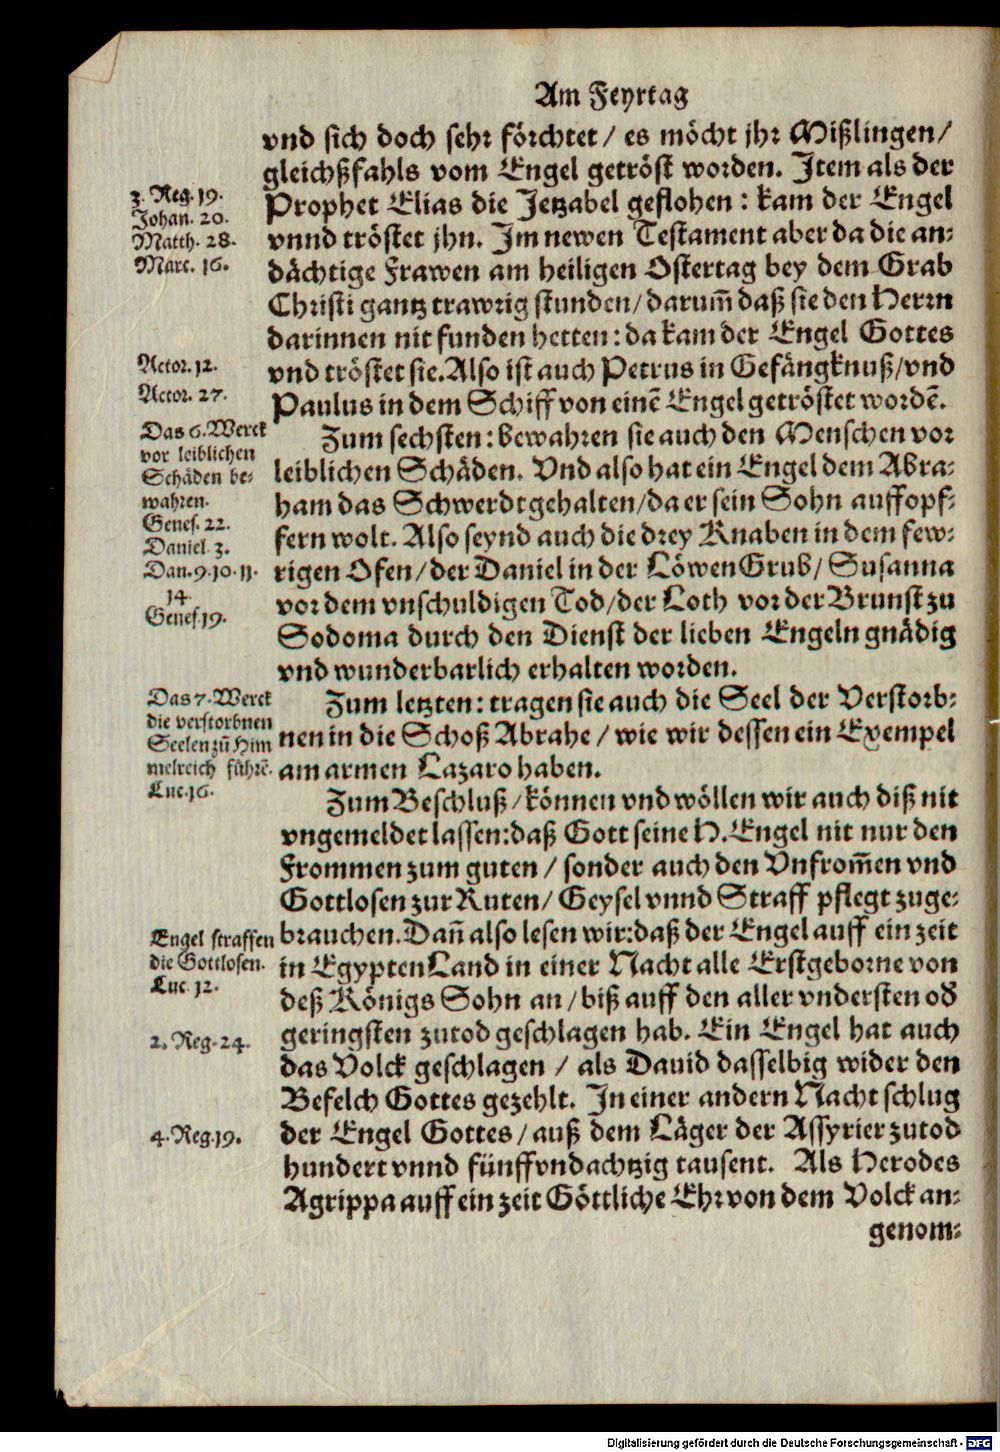 Am Feyrtag
vnd sich doch sehr förchtet / es möcht jhr Mißlingen /
gleichßfahls vom Engel getröst worden. Jtem als der
Prophet Elias die Jetzabel geflohen : kam der Engel
vnnd tröstet jhn. Jm newen Testament aber da die an-
dächtige Frawen am heiligen Ostertag bey dem Grab
Christi gantz trawrig stunden / darum̃ daß sie den Herrn
darinnen nit funden hetten : da kam der Engel Gottes
vnd tröstet sie. Also ist auch Petrus in Gefängknuß / vnd
Paulus in dem Schiff von einẽ Engel getröstet wordẽ.
Zum sechsten : bewahren sie auch den Menschen vor
leiblichen Schäden. Vnd also hat ein Engel dem Abra-
ham das Schwerdt gehalten / da er sein Sohn auffopf-
fern wolt. Also seynd auch die drey Knaben in dem few-
rigen Ofen / der Daniel in der Löwen Grub / Susanna
vor dem vnschuldigen Tod / der Loth vor der Brunst zu
Sodoma durch den Dienst der lieben Engeln gnädig
vnd wunderbarlich erhalten worden.
Zum letzten : tragen sie auch die Seel der Verstorb-
nen in die Schoß Abrahe / wie wir dessen ein Exempel
am armen Lazaro haben.
Zum Beschluß / können vnd wöllen wir auch diß nit
vngemeldet lassen : daß Gott seine H. Engel nit nur den
Frommen zum guten / sonder auch den Vnfrom̃en vnd
Gottlosen zur Ruten / Geysel vnnd Straff pflegt zuge-
brauchen. Dañ also lesen wir : daß der Engel auff ein zeit
in Egypten Land in einer Nacht alle Erstgeborne von
deß Königs Sohn an / biß auff den aller vndersten oď
geringsten zutod geschlagen hab. Ein Engel hat auch
das Volck geschlagen / als Dauid dasselbig wider den
Befelch Gottes gezehlt. Jn einer andern Nacht schlug
der Engel Gottes / auß dem Läger der Assyrier zutod
hundert vnnd fünffvndachtzig tausent. Als Herodes
Agrippa auff ein zeit Göttliche Ehr von dem Volck an-
genom-
3. Reg. 19.
Johan. 20.
Matth. 28.
Marc. 16.
Actor. 12.
Actor. 27.
Das 6. Werck
vor leiblichen
Schäden be-
wahren.
Genes. 22.
Daniel 3.
Dan. 9. 10. 11.
14.
Genes. 19.
Das 7. Werck
die verstorbnen
Seelen zů Him
melreich führẽ.
Luc. 16.
Engel straffen
die Gottlosen.
Luc. 12.
2. Reg. 24.
4. Reg. 19.
Digitalisierung gefördert durch die Deutsche Forschungsgemeinschaft - DFG